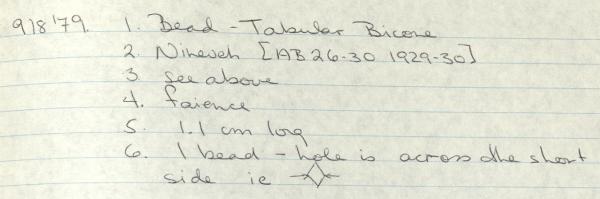 918'79. 1. Bead - Tabular Bicone
2. Nineveh [AB 26-30 1929-30]
3 see above
4. faience
5. 1.1 cm long
6. 1 bead - hole is across the short
side ie